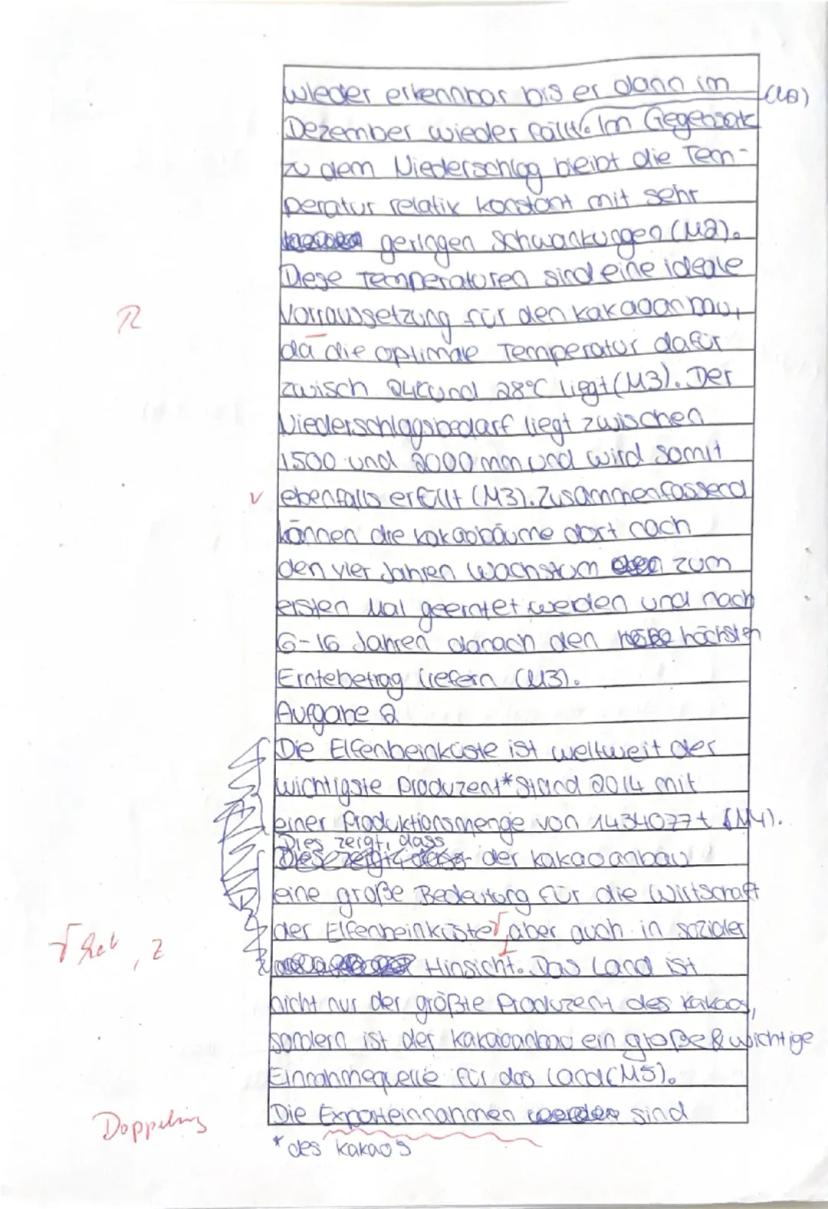 wieder erkennbar bis er dann im
Dezember wieder fällt. Im Gegensatz
zu dem Niederschlag bleibt die Tem-
peratur relativ konstant mit sehr
geringen Schwankungen (M2).
Diese Temperaturen sind eine ideale
R
Vorraussetzung für den Kakaoanbau,
da die optimale Temperatur dafür
zwisch 24°C und 28°C liegt (M3). Der
Niederschlagsbedarf liegt zwischen
1500 und 2000 mm und wird somit
v ebenfalls erfüllt (M3). Zusammenfassend
können die Kakaobäume dort nach
den vier Jahren Wachstum zum
ersten Mal geerntet werden und nach
6-16 Jahren danach den höchsten
Erntebetrag liefern (M3).
Aufgabe 2
Die Elfenbeinküste ist weltweit der
wichtigste Produzent* Stand 2014 mit
einer Produktionsmenge von 1434077 t (M4).
Dies zeigt, dass
der Kakaoanbau
eine große Bedeutung für die Wirtschaft
der Elfenbeinküste aber auch in sozialer
Hinsicht. Das Land ist
nicht nur der größte Produzent des Kakaos,
sondern ist der Kakaoanbau ein große & wichtige
Einnahmequelle für das Land (M5).
Die Exporteinnahmen werden sind
Doppelung
* des Kakaos